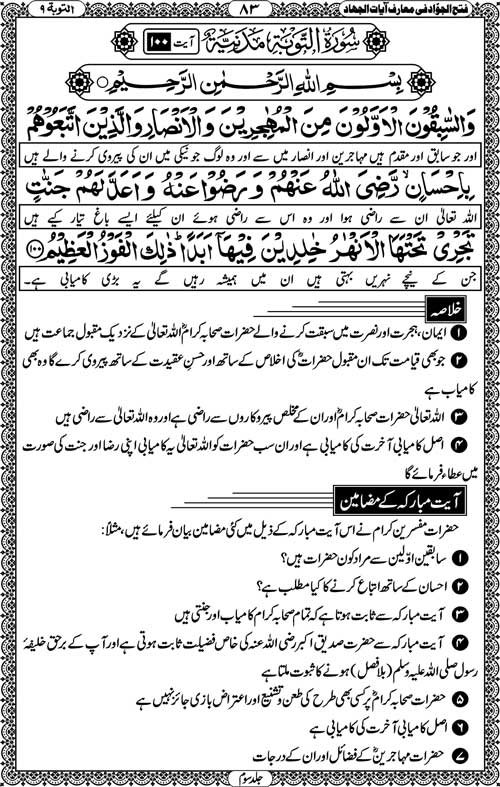 فتح الجوّاد فی معارف آیات الجهاد ۸۳ التوبة ۹
سُوْرَةُ التَّوْبَةِ مَدَنِيَّةٌ آیت ۱۰۰
بِسْمِ اللهِ الرَّحْمٰنِ الرَّحِيْمِ
وَالسّٰبِقُوْنَ الْاَوَّلُوْنَ مِنَ الْمُهٰجِرِيْنَ وَالْاَنْصَارِ وَالَّذِيْنَ اتَّبَعُوْهُمْ
اور جو سابق اور مقدم ہیں مہاجرین اور انصار میں سے اور وہ لوگ جو نیکی میں ان کی پیروی کرنے والے ہیں
بِاِحْسَانٍ رَّضِيَ اللهُ عَنْهُمْ وَرَضُوْا عَنْهُ وَاَعَدَّ لَهُمْ جَنّٰتٍ
اللہ تعالیٰ ان سے راضی ہوا اور وہ اس سے راضی ہوئے ان کیلئے ایسے باغ تیار کیے ہیں
تَجْرِيْ تَحْتَهَا الْاَنْهٰرُ خٰلِدِيْنَ فِيْهَا اَبَدًا ذٰلِكَ الْفَوْزُ الْعَظِيْمُ ۱۰۰
جن کے نیچے نہریں بہتی ہیں ان میں ہمیشہ رہیں گے یہ بڑی کامیابی ہے۔
خلاصہ
۱ ایمان، ہجرت اور نصرت میں سبقت کرنے والے حضرات صحابہ کرامؓ اللہ تعالیٰ کے نزدیک مقبول جماعت ہیں
۲ جو بھی قیامت تک ان مقبول حضرات کی اخلاص کے ساتھ اور حسنِ عقیدت کے ساتھ پیروی کرے گا وہ بھی
کامیاب ہے
۳ اللہ تعالیٰ حضرات صحابہ کرامؓ اور ان کے مخلص پیروکاروں سے راضی ہے اور وہ اللہ تعالیٰ سے راضی ہیں
۴ اصل کامیابی آخرت کی کامیابی ہے اور ان سب حضرات کو اللہ تعالیٰ یہ کامیابی اپنی رضا اور جنت کی صورت
میں عطاء فرمائے گا
آیت مبارکہ کے مضامین
حضرات مفسرین کرام نے اس آیت مبارکہ کے ذیل میں کئی مضامین بیان فرمائے ہیں، مثلاً:
۱ سابقین اوّلین سے مراد کون حضرات ہیں؟
۲ احسان کے ساتھ اتباع کرنے کا کیا مطلب ہے؟
۳ آیت مبارکہ سے ثابت ہوتا ہے کہ تمام صحابہ کرام کامیاب اور جنتی ہیں
۴ آیت مبارکہ سے حضرت صدیق اکبر رضی اللہ عنہ کی خاص فضیلت ثابت ہوتی ہے اور آپ کے برحق خلیفۂ
رسول صلی اللہ علیہ وسلم (بلا فصل) ہونے کا ثبوت ملتا ہے
۵ حضرات صحابہ کرامؓ پر کسی بھی طرح کی طعن و تشنیع اور اعتراض بازی جائز نہیں ہے
۶ اصل کامیابی آخرت کی کامیابی ہے
۷ حضرات مہاجرینؓ کے فضائل اور ان کے درجات
جلد سوم